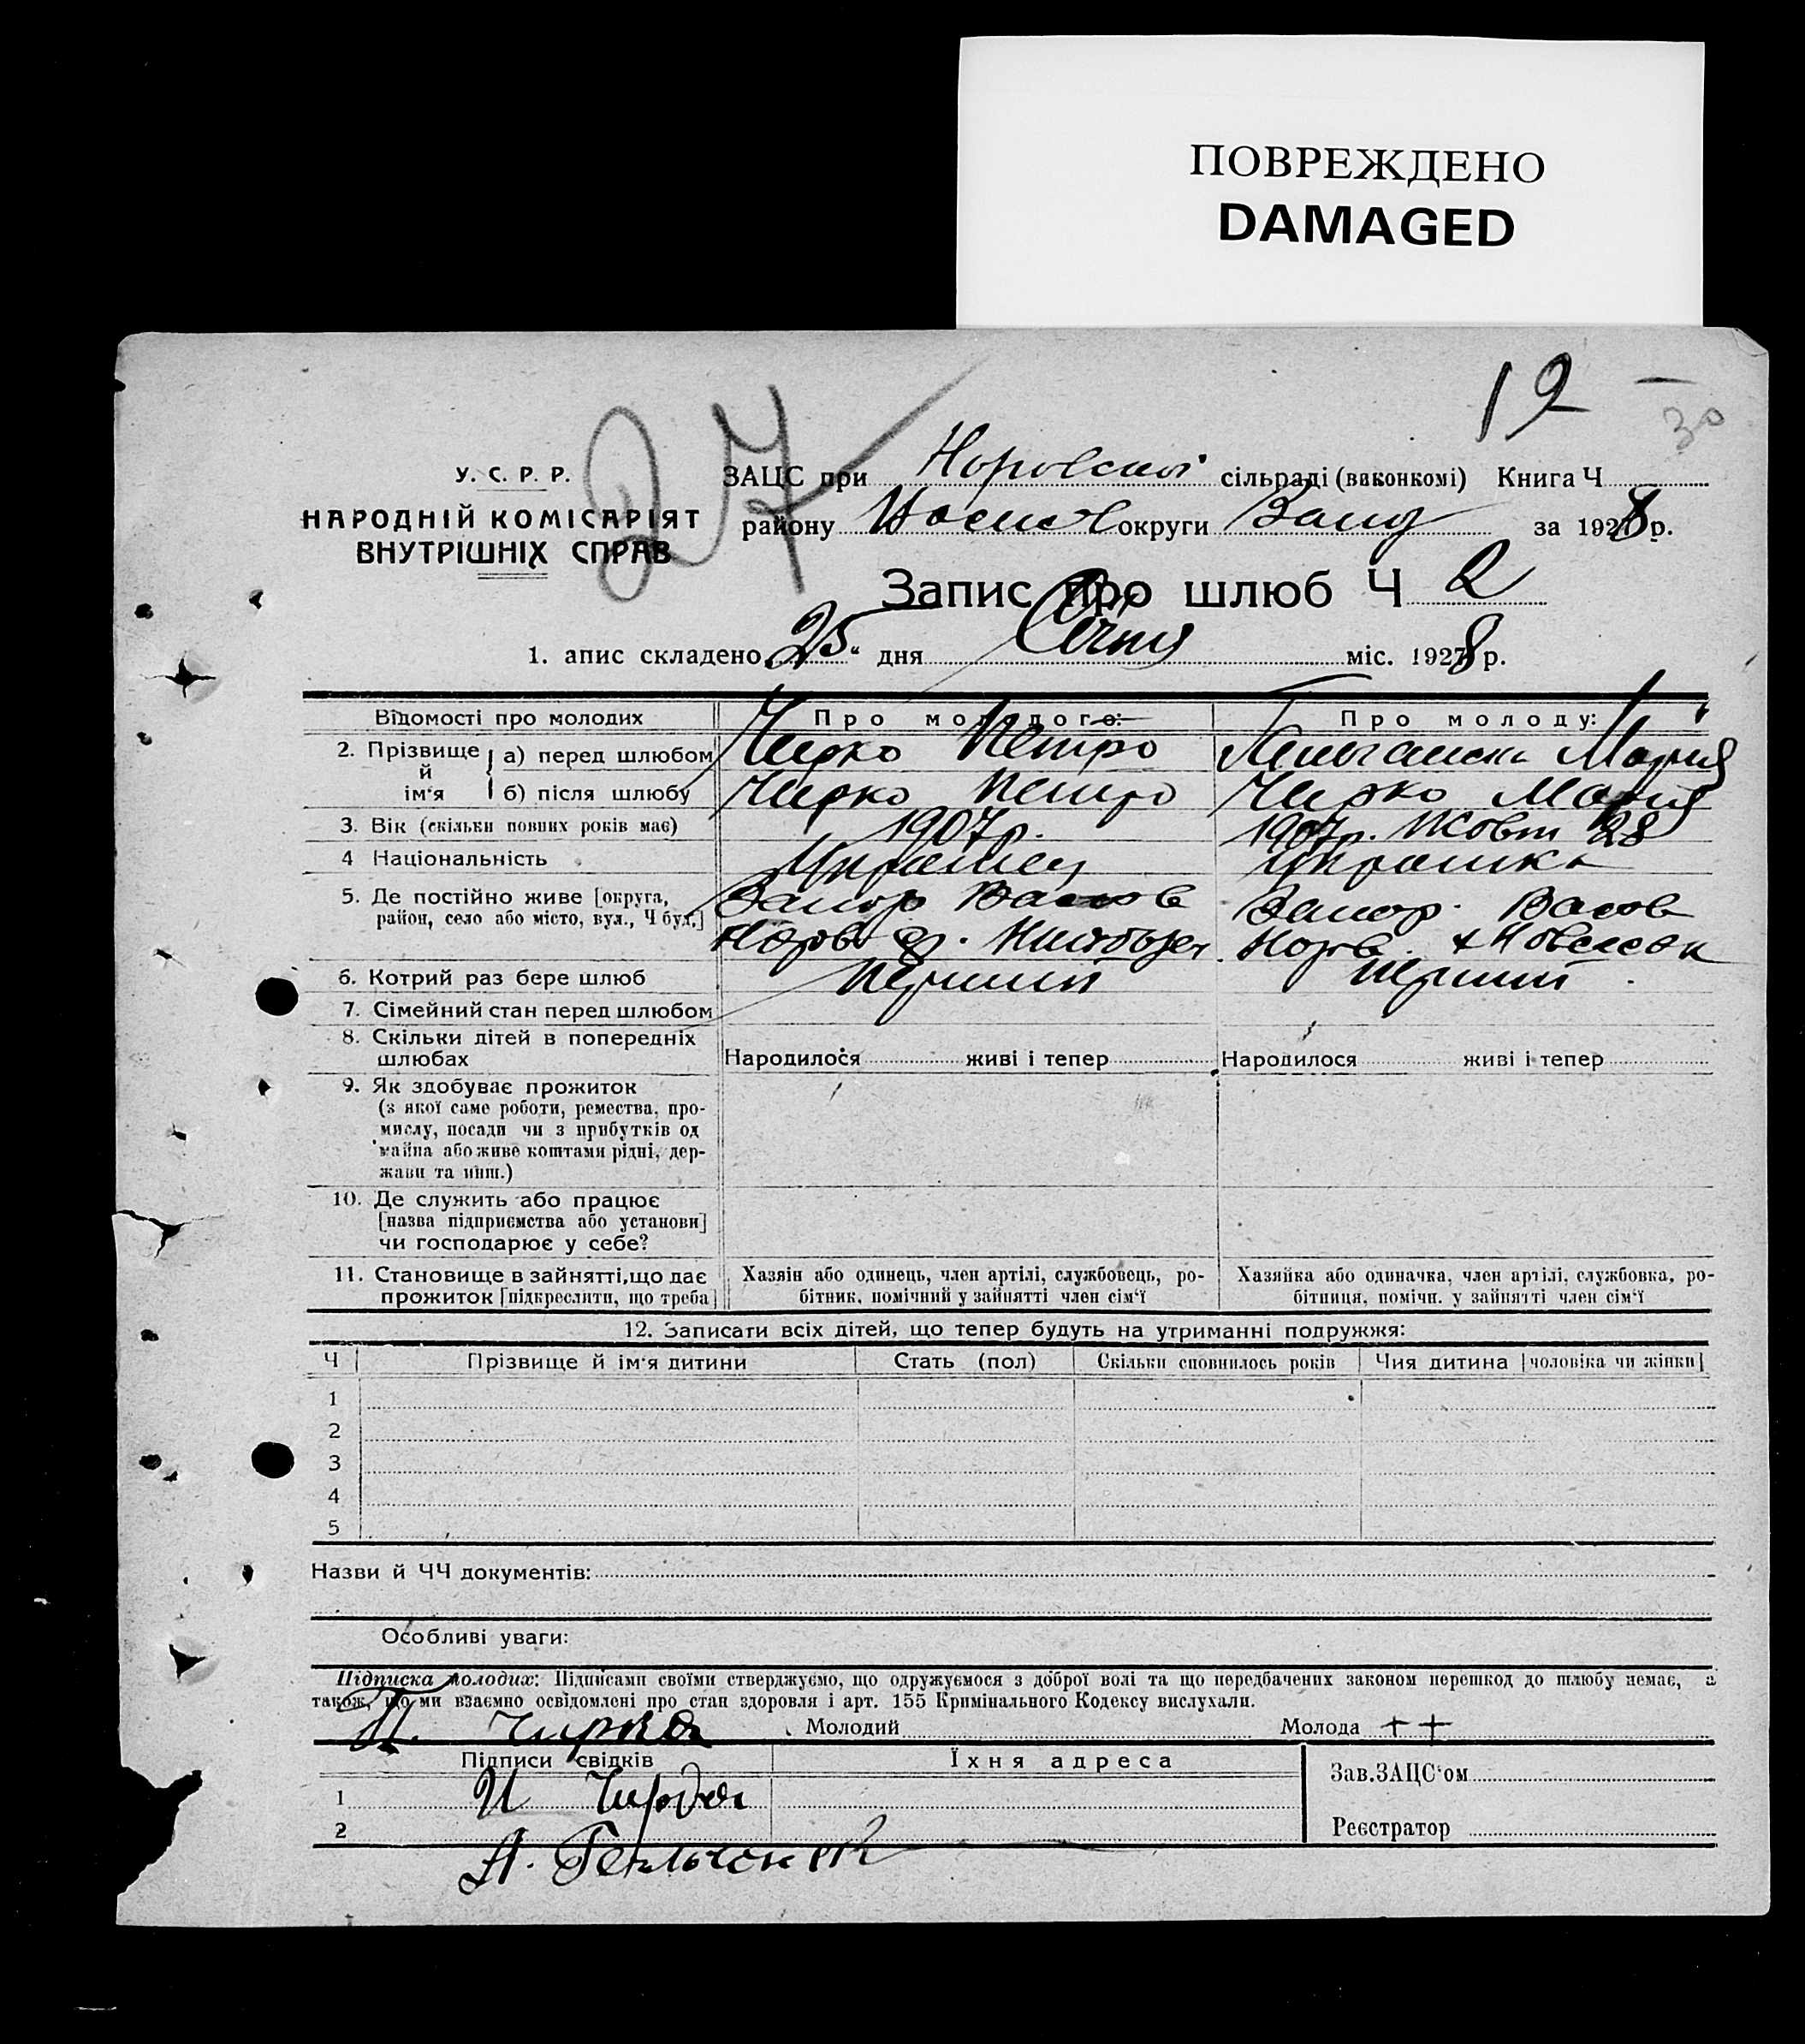 ПОВРЕЖДЕНО
DAMAGED
12
30
27
У. С. Р. Р.
НАРОДНІЙ КОМІСАРІЯТ
ВНУТРІШНІХ СПРАВ
ЗАЦС при сільраді (виконкомі) Книга Ч
району округи за 1928 р.
Запис про шлюб Ч 2
1. апис складено „25“ дня Січня міс. 1928 р.
Відомості про молодих Про молодого: Про молоду:
2. Прізвище й ім'я а) перед шлюбом Чирко Петро Марія
б) після шлюбу Чирко Петро Чирко Марія
3. Вік (скільки повних років має) 1907 р. 1907 р. Жовт 28
4 Національність Українец Українка
5. Де постійно живе [округа, Запор Васов Запор. Васов
район, село або місто, вул., Ч буд.] Норов
6. Котрий раз бере шлюб Перший Перший
7. Сімейний стан перед шлюбом
8. Скільки дітей в попередніх
шлюбах Народилося живі і тепер Народилося живі і тепер
9. Як здобуває прожиток
(з якої саме роботи, ремества, про-
мислу, посади чи з прибутків од
майна або живе коштами рідні, дер-
жави та инш.)
10. Де служить або працює
[назва підприємства або установи]
чи господарює у себе?
11. Становище в зайнятті, що дає Хазяїн або одинець, член артілі, службовець, ро- Хазяйка або одиначка, член артілі, службовка, ро-
прожиток [підкреслити, що треба] бітник, помічний у зайнятті член сім'ї бітниця, помічн. у зайнятті член сім'ї
12. Записати всіх дітей, що тепер будуть на утриманні подружжя:
Ч Прізвище й ім'я дитини Стать (пол) Скільки сповнилось років Чия дитина [чоловіка чи жінки]
1
2
3
4
5
Назви й ЧЧ документів:
Особливі уваги:
Підписка молодих: Підписами своїми стверджуємо, що одружуємося з доброї волі та що передбачених законом перешкод до шлюбу немає, а
також, що ми взаємно освідомлені про стан здоровля і арт. 155 Кримінального Кодексу вислухали.
П. Чирко Молодий Молода ++
Підписи свідків Їхня адреса Зав. ЗАЦС'ом
1
2 Реєстратор